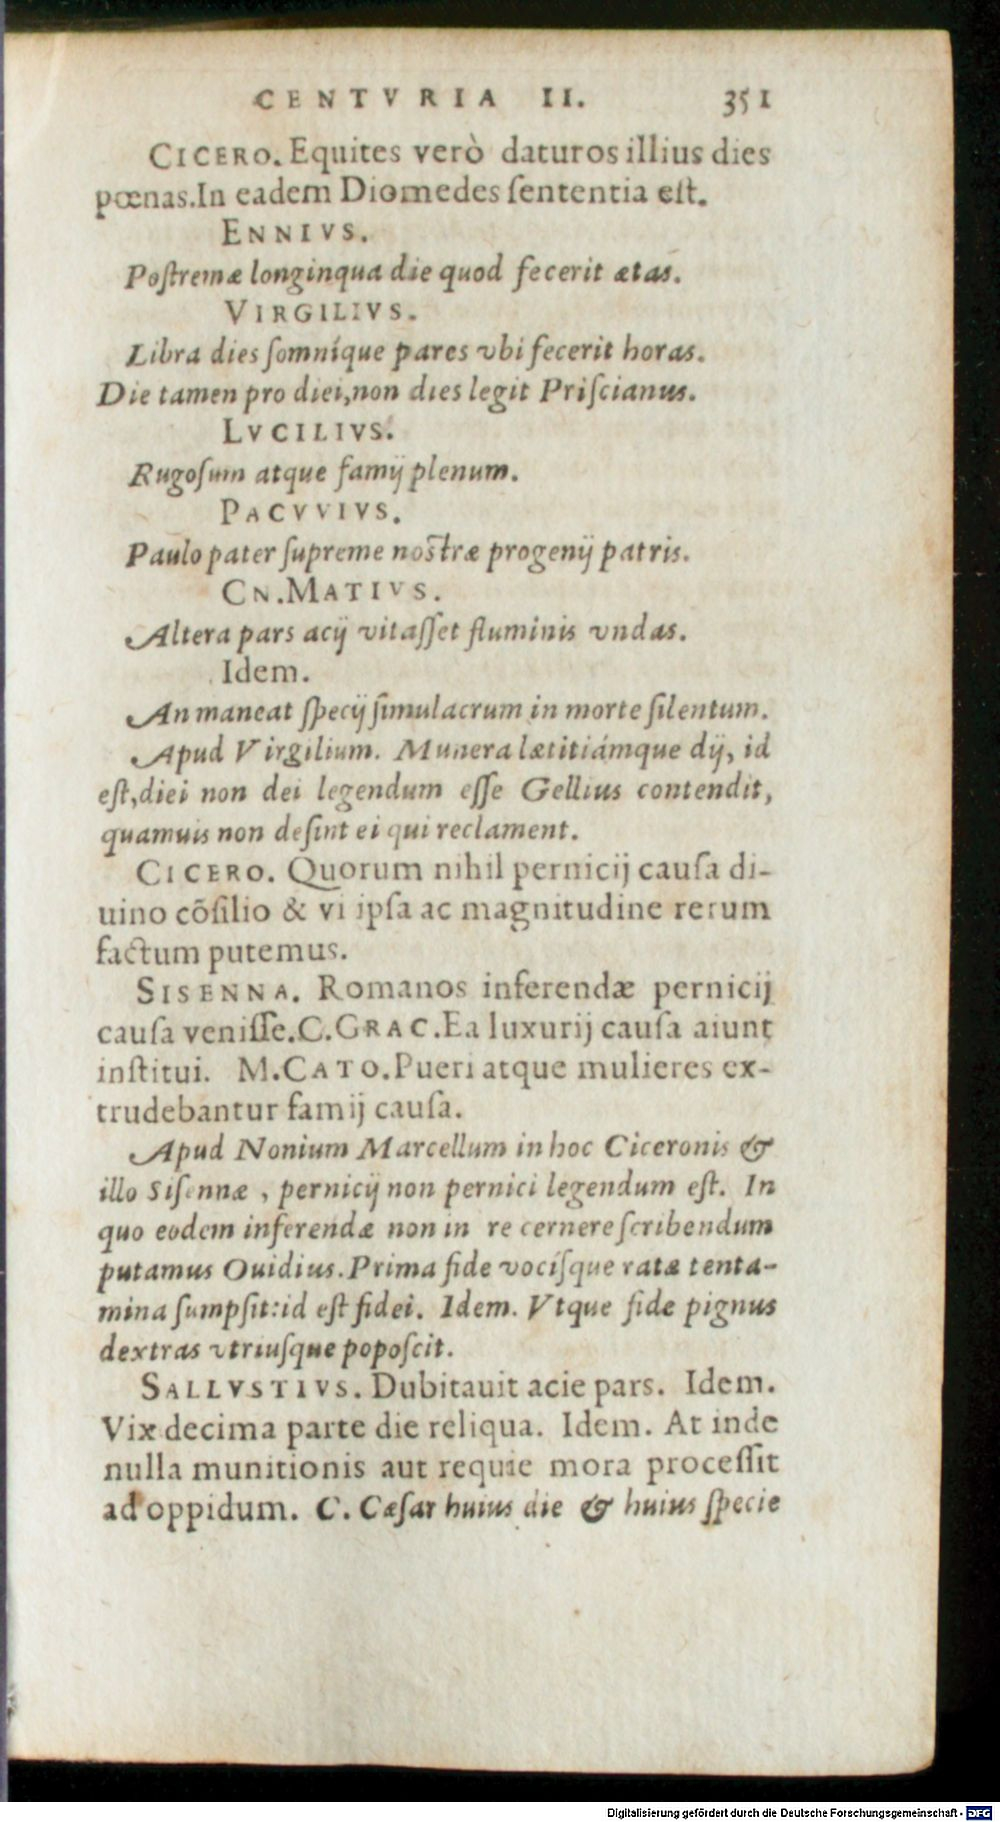 CENTVRIA II. 351
CICERO. Equites verò daturos illius dies
pœnas. In eadem Diomedes ſententia eſt.
ENNIVS.
Poſtremæ longinqua die quod fecerit ætas.
VIRGILIVS.
Libra dies ſomníque pares vbi fecerit horas.
Die tamen pro diei, non dies legit Priſcianus.
LVCILIVS.
Rugoſum atque famij plenum.
PACVVIVS.
Paulo pater ſupreme noſtræ progenij patris.
CN. MATIVS.
Altera pars acij vitaſſet fluminis vndas.
Idem.
An maneat ſpecij ſimulacrum in morte ſilentum.
Apud Virgilium. Munera lætitiámque dij, id
eſt, diei non dei legendum eſſe Gellius contendit,
quamuis non deſint ei qui reclament.
CICERO. Quorum nihil pernicij cauſa di-
uino cõſilio & vi ipſa ac magnitudine rerum
factum putemus.
SISENNA. Romanos inferendæ pernicij
cauſa veniſſe. C. GRAC. Ea luxurij cauſa aiunt
inſtitui. M. CATO. Pueri atque mulieres ex-
trudebantur famij cauſa.
Apud Nonium Marcellum in hoc Ciceronis &
illo Siſennæ, pernicij non pernici legendum eſt. In
quo eodem inferendæ non in re cernere ſcribendum
putamus Ouidius. Prima fide vocíſque ratæ tenta-
mina ſumpſit: id eſt fidei. Idem. Vtque fide pignus
dextras vtriuſque popoſcit.
SALLVSTIVS. Dubitauit acie pars. Idem.
Vix decima parte die reliqua. Idem. At inde
nulla munitionis aut requie mora proceſſit
ad oppidum. C. Cæſar huius die & huius ſpecie
Digitalisierung gefördert durch die Deutsche Forschungsgemeinschaft - DFG